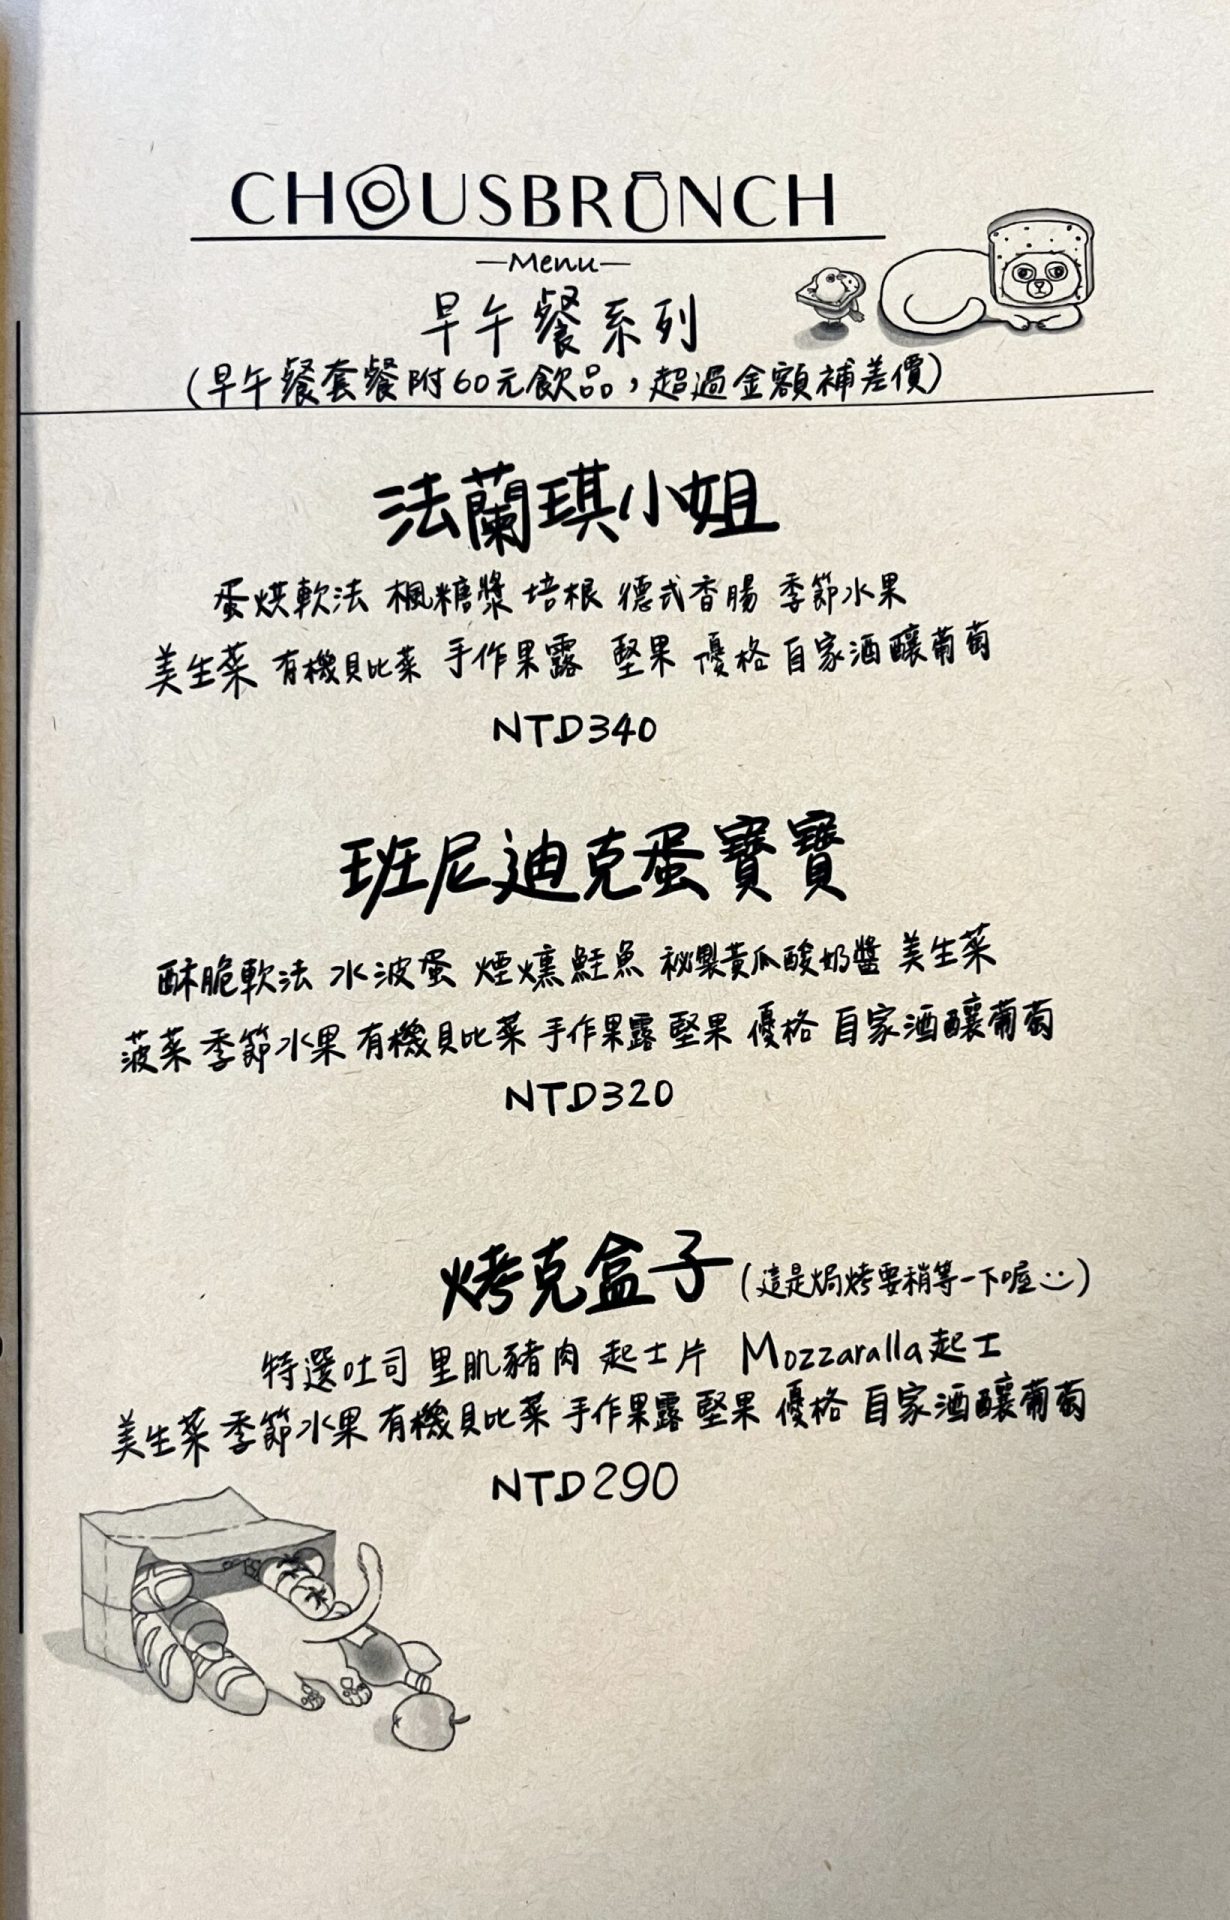 CHOUSBRUNCH
—Menu—
早午餐系列
(早午餐套餐附60元飲品，超過金額補差價)
法蘭琪小姐
蛋烘軟法 楓糖漿 培根 德式香腸 季節水果
美生菜 有機貝比菜 手作果露 堅果 優格 自家酒釀葡萄
NTD340
班尼迪克蛋寶寶
酥脆軟法 水波蛋 煙燻鮭魚 祕製黃瓜酸奶醬 美生菜
菠菜 季節水果 有機貝比菜 手作果露 堅果 優格 自家酒釀葡萄
NTD320
烤克盒子(這是焗烤要稍等一下喔:))
特選吐司 里肌豬肉 起士片 Mozzaralla起士
美生菜 季節水果 有機貝比菜 手作果露 堅果 優格 自家酒釀葡萄
NTD290